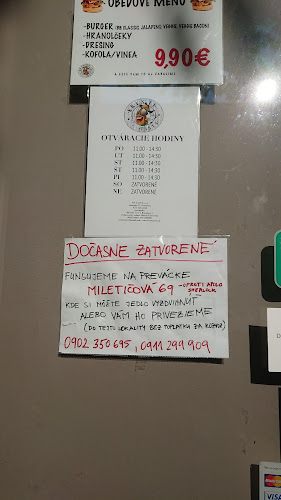 OBEDOVÉ MENU
-BURGER
-HRANOLČEKY
-DRESING
-KOFOLA/VINEA
9,90€
OTVÁRACIE HODINY
PO 11:00 - 14:30
UT 11:00 - 14:30
ST 11:00 - 14:30
ŠT 11:00 - 14:30
PI 11:00 - 14:30
SO ZATVORENÉ
NE ZATVORENÉ
DOČASNE ZATVORENÉ
FUNGUJEME NA PREVÁDZKE
MILETIČOVA 69 -OPROTI APOLO
KDE SI MÔŽETE JEDLO VYZDVIHNÚŤ
ALEBO VÁM HO PRIVEZIEME
(DO TEJTO LOKALITY BEZ POPLATKU ZA ROZVOZ)
0902 350 695, 0911 299 909
MasterCard
VISA